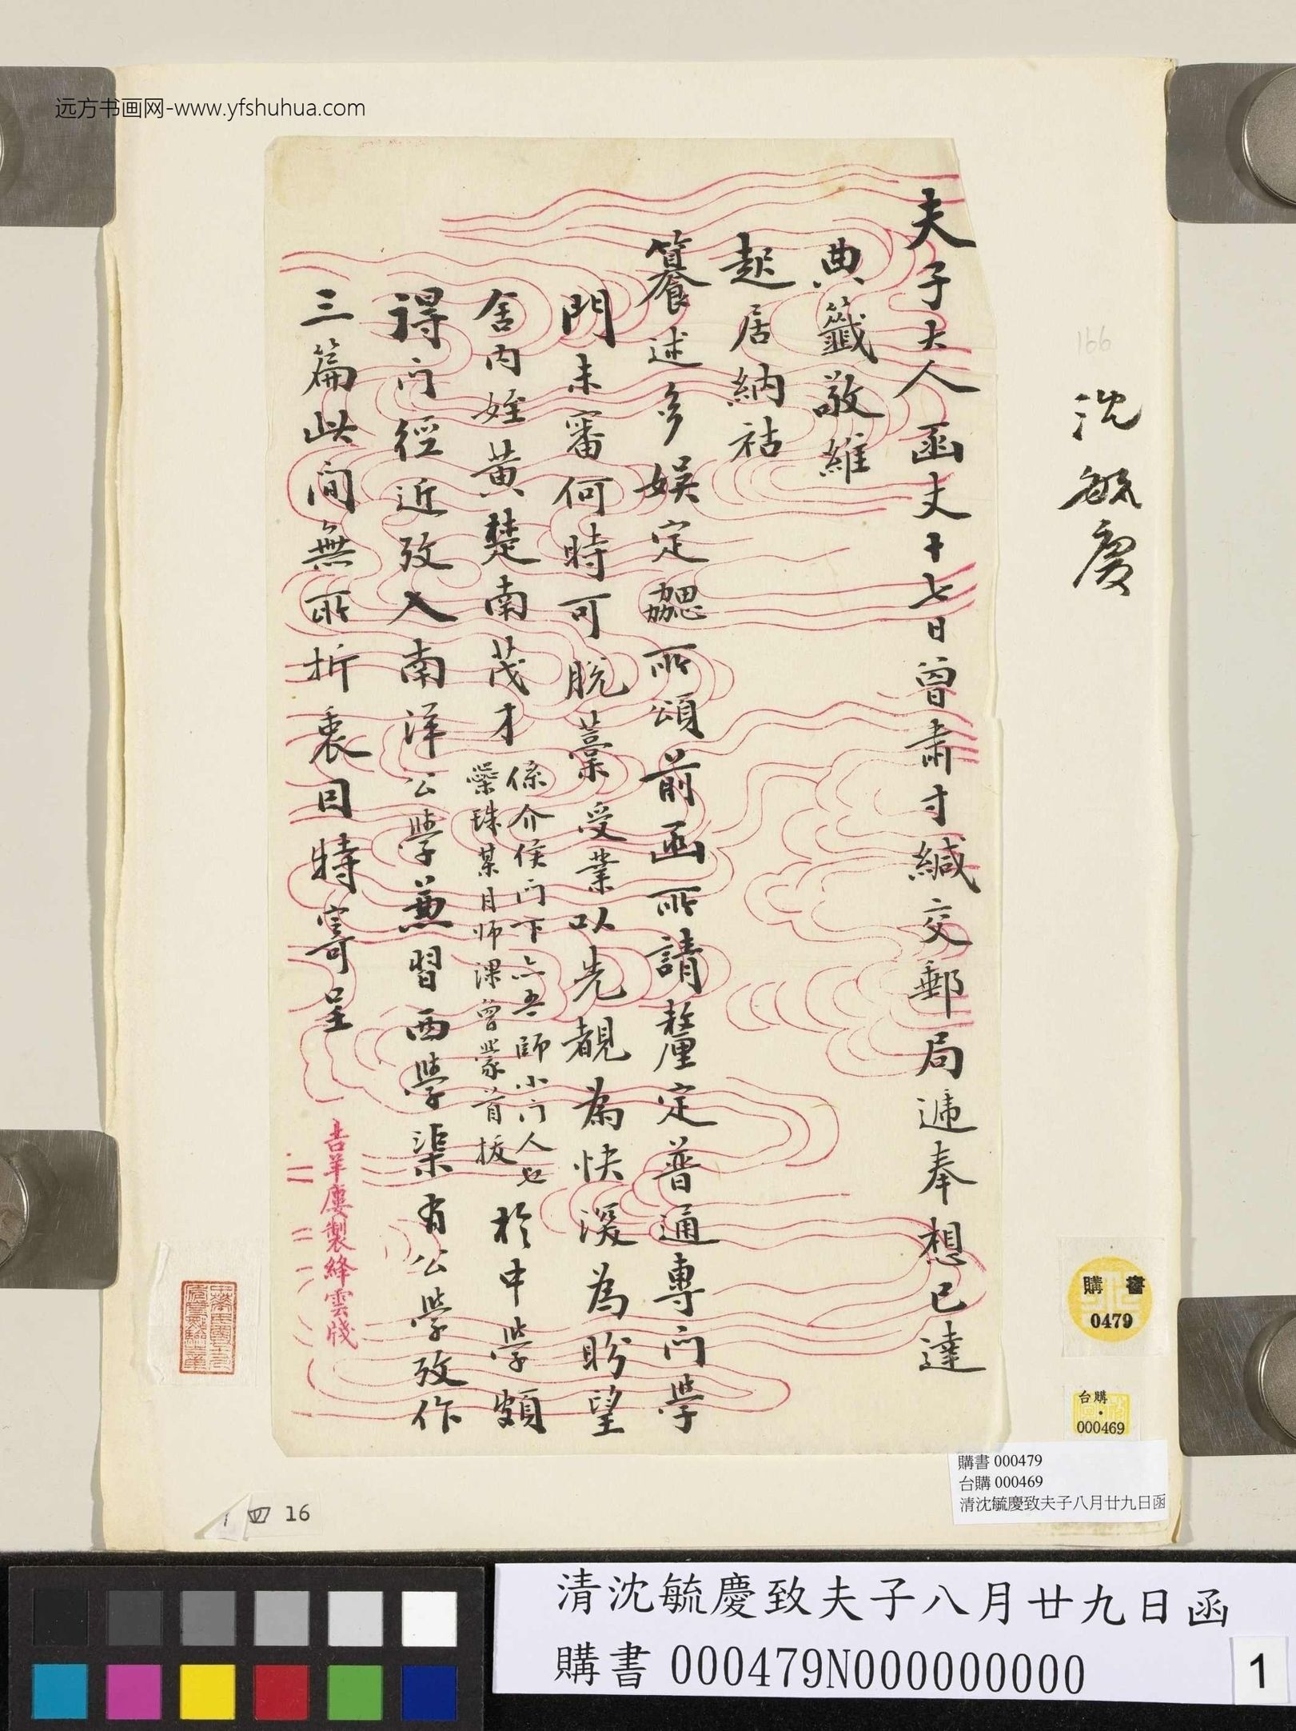 远方书画网-www.yfshuhua.com
夫子大人函丈十七日曾肅寸緘交郵局遞奉想已達
典籤敬維
起居納祜
籑述多娱定勰所頌前函所請釐定普通專门學
門未審何時可脱藁受業以先覩為快深為盼望
舍内姪黄楚南茂才
係介侯门下亦吾師小门人也
紫珠某月师课曾蒙首拔
於中學頗
得门徑近攷入南洋公學兼習西學渠有公學攷作
三篇此间無所折衷因特寄呈
吉羊廔製絳雲牋
166
沈毓慶
購書
0479
台購
000469
購書 000479
台購 000469
清沈毓慶致夫子八月廿九日函
四 16
清沈毓慶致夫子八月廿九日函
購書 000479N000000000
1